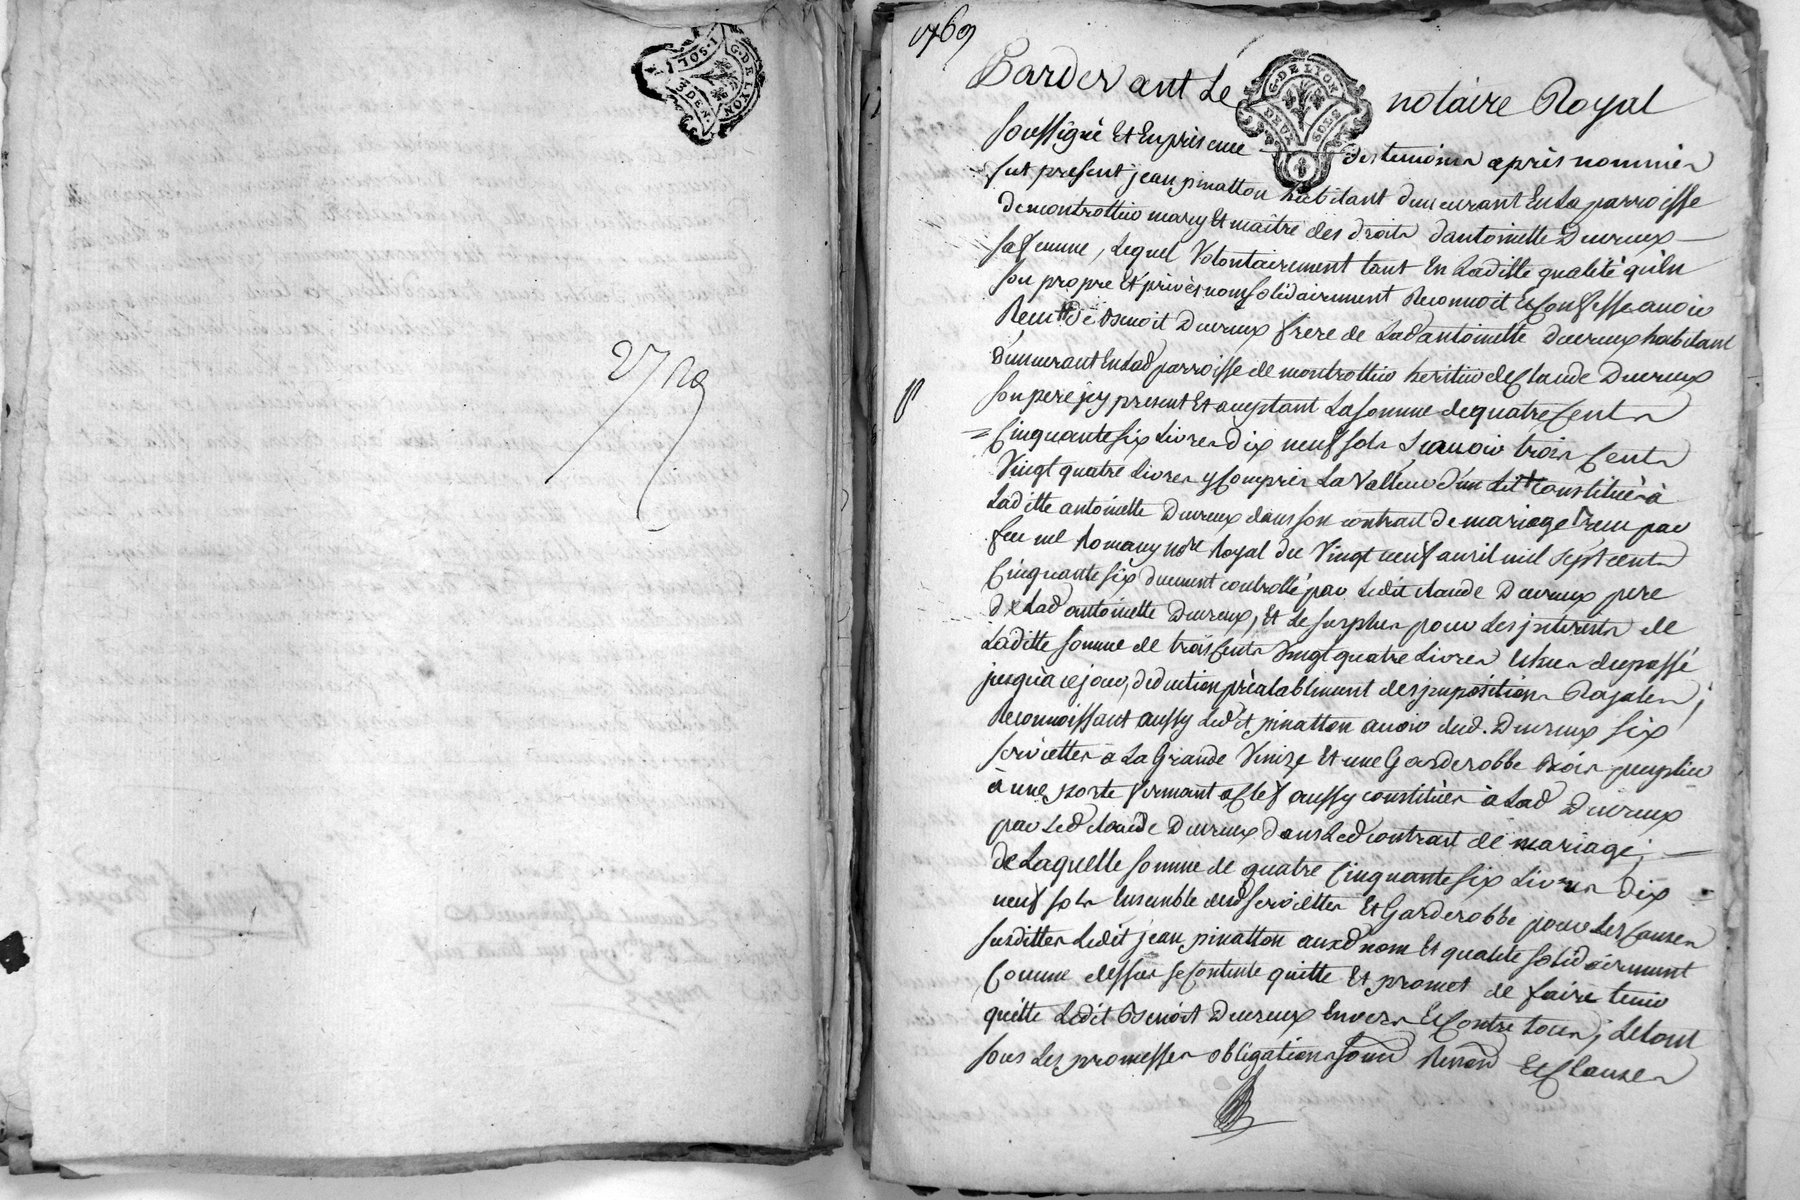 1 SOL
G. DE LYON
DEN.
1769
Pardevant Le notaire Royal
G. DE LYON
DEUX SOLS
soussigné Et En presence des temoins après nommés
fut présent jean pinatton habitant demeurant En La parroisse
de montrottier mary Et maître des droits d'antoinette Duvreux
sa femme, Lequel Volontairement tant En Laditte qualité qu'En
son propre Et privé nom solidairement Reconnoit Et Confesse avoir
Reçu de Benoit Duvreux frere de Lad antoinette Duvreux habitant
demeurant En Lad parroisse de montrottier heritier de Claude Duvreux
son pere jcy present Et acceptant La somme de quatre Cents
Cinquante six Livres dix neuf sols sçavoir trois Cents
Vingt quatre Livres y Compris La Valleur d'un Lit Constitués à
Laditte antoinette Duvreux dans son contrat de mariage reçu par
feu me Romany nore Royal du Vingt neuf avril mil sept cents
Cinquante six duement controllé par Ledit claude Duvreux pere
de Lad antoinette Duvreux, Et Le surplus pour Les jnterests de
Laditte somme de trois Cents Vingt quatre Livres Echus du passé
jusqua ce jour, deduction préalablement des jmpositions Royales;
Reconnoissant aussy Ledit pinatton avoir dud. Duvreux six
serviettes à La Grande Venize Et une Garderobbe bois peuplier
à une porte fermant à Clef aussy constitués à Lad Duvreux
par Led claude Duvreux dans Led contrat de mariage;
de Laquelle somme de quatre Cinquante six Livres Dix
neuf sols Ensemble desd serviettes Et Garderobbe pour Les Causes
susdittes Ledit jean pinatton auxd nom Et qualité solidairement
Comme dessus se Contente quitte Et promet de faire tenir
quitte Ledit Benoit Duvreux Envers Et Contre tous; Le tout
sous Les promesses obligations soum Renon Et Clauses